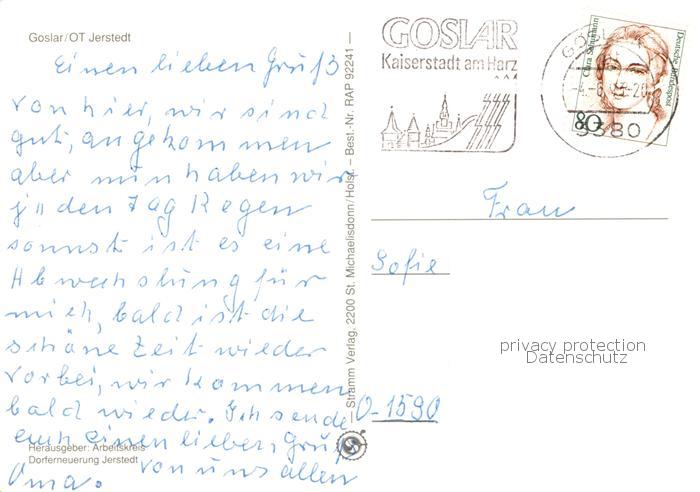 Goslar/OT Jerstedt
Einen lieben Gruß
von hier, wir sind
gut, angekommen
aber nun haben wir
jeden Tag Regen
sonnst ist es eine
Abwechslung für
mich, bald ist die
schöne Zeit wieder
vorbei, wir kommen
bald wieder. Ich sende
euch einen lieben, Gruß
von uns allen
Oma.
Herausgeber: Arbeitskreis
Dorferneuerung Jerstedt
Stramm Verlag, 2200 St. Michaelisdonn/Holst. – Best.-Nr. RAP 92241 –
GOSLAR
Kaiserstadt am Harz
Clara Schumann
Deutsche Bundespost
80
3380
Frau
Sofie
O-1590
privacy protection
Datenschutz